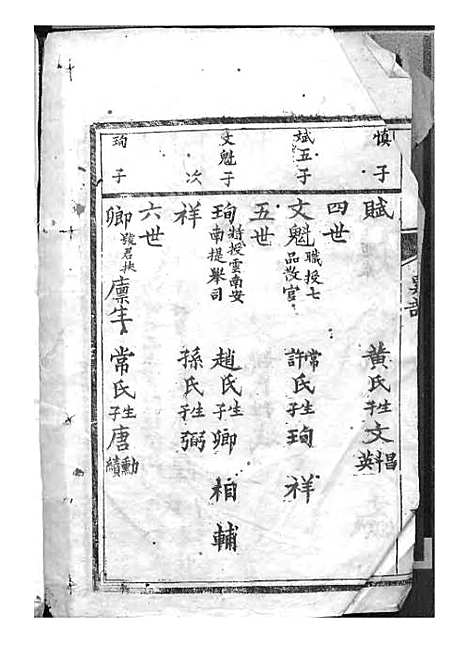 慎子
賦 黃氏生子文昌科英
四世
斌五子
文魁 職授七品散官 常許氏生子珣 祥
五世
文魁子
珣 特授雲南安南提舉司 趙氏生子卿 相 輔
次
祥 孫氏生子弼
六世
珣子
卿 號君扶 廩生 常氏生子唐勳績